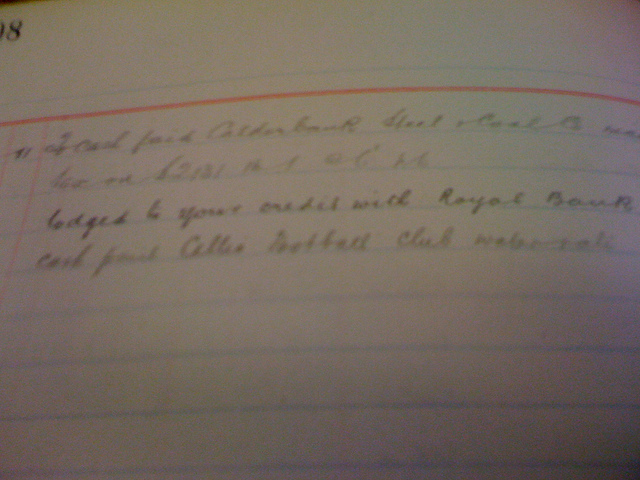 98
11 To Cash paid Calderbank Steel & Coal Co
tax on
lodged to your credit with Royal Bank
cash paid Celtic Football Club water rate